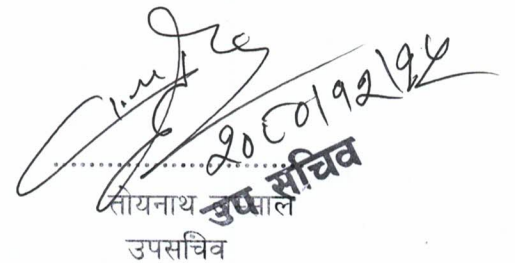 २०८०।१२।१५
उप सचिव
तोयनाथ
उपसचिव